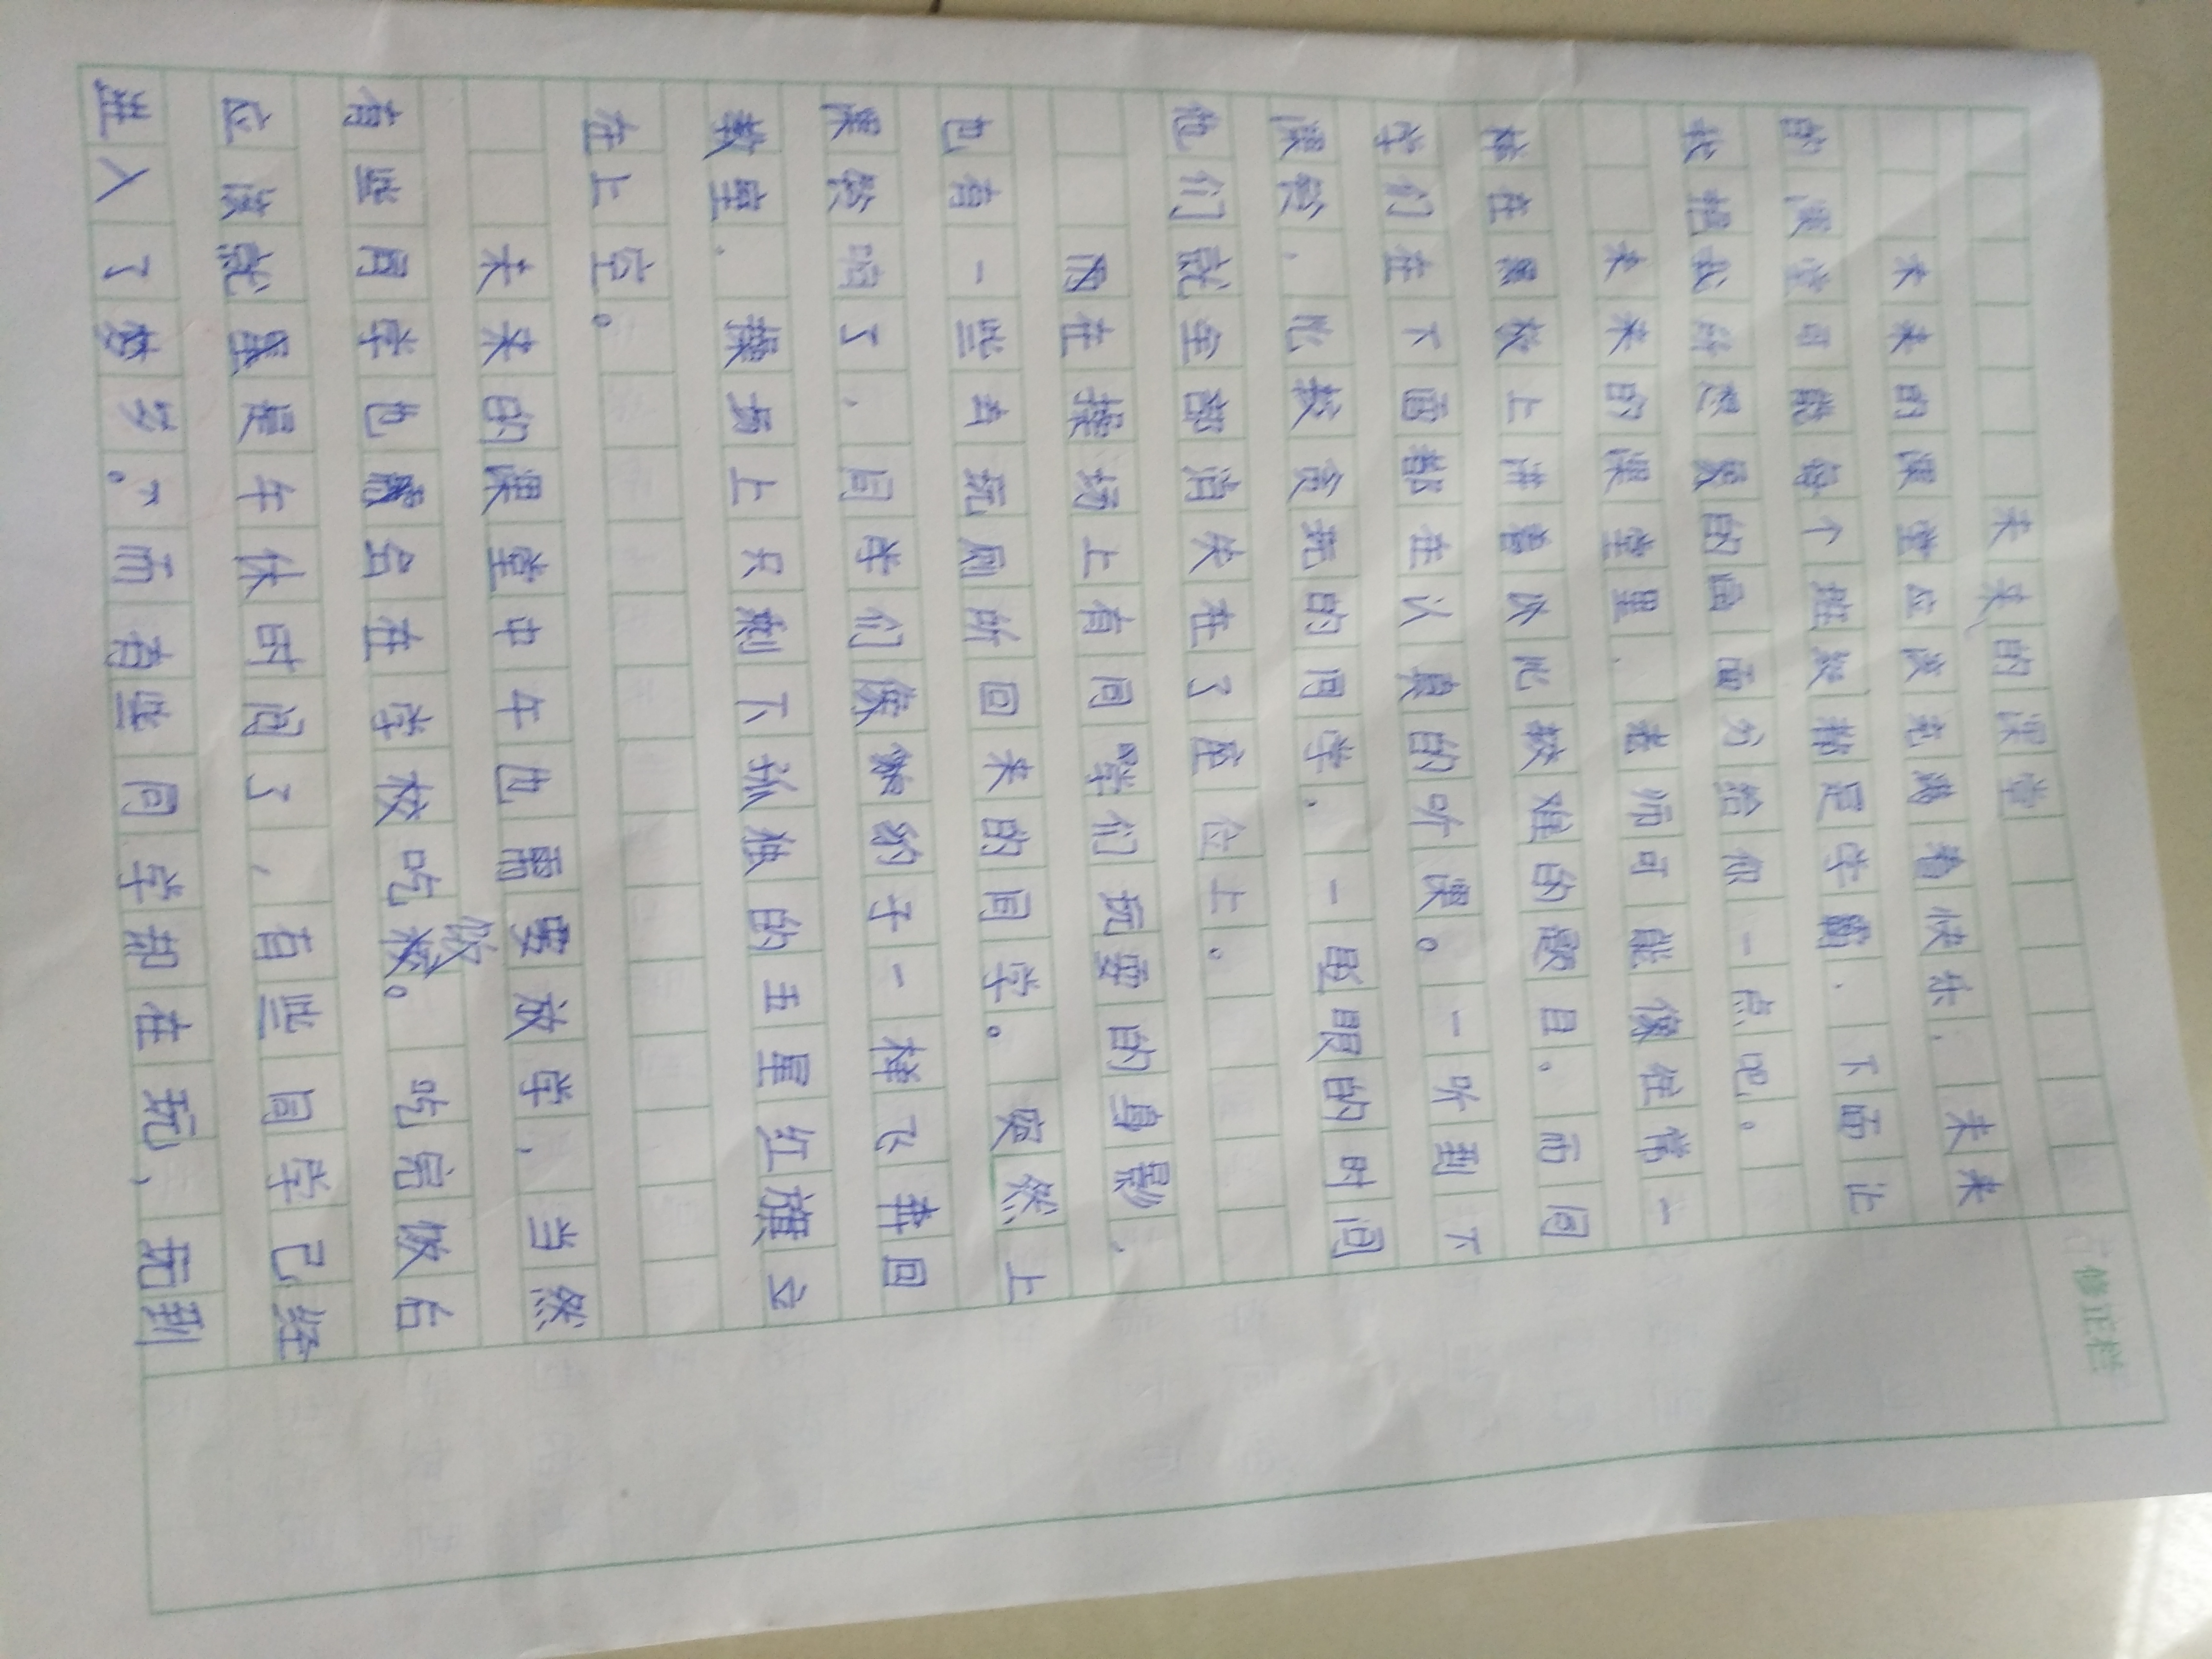 未来的课堂
未来的课堂应该充满着快乐,未来
的课堂可能每个班级都是学霸,下面让
我把我所想象的画面分给你一点吧。
未来的课堂里,老师可能像往常一
样在黑板上讲着次比较难的题目。而同
学们在下面都在认真的听课。一听到下
课铃,比较贪玩的同学,一眨眼的时间
他们就全部消失在了座位上。
而在操场上有同学们玩耍的身影,
也有一些去玩厕所回来的同学。突然上
课铃响了,同学们像豹子一样飞奔回
教室,操场上只剩下孤独的五星红旗立
在上空。
未来的课堂中午也需要放学,当然
有些同学也会在学校吃饭。吃完饭后
应该就是午休时间了,有些同学已经
进入了梦乡。而有些同学却在玩,玩到
修正栏